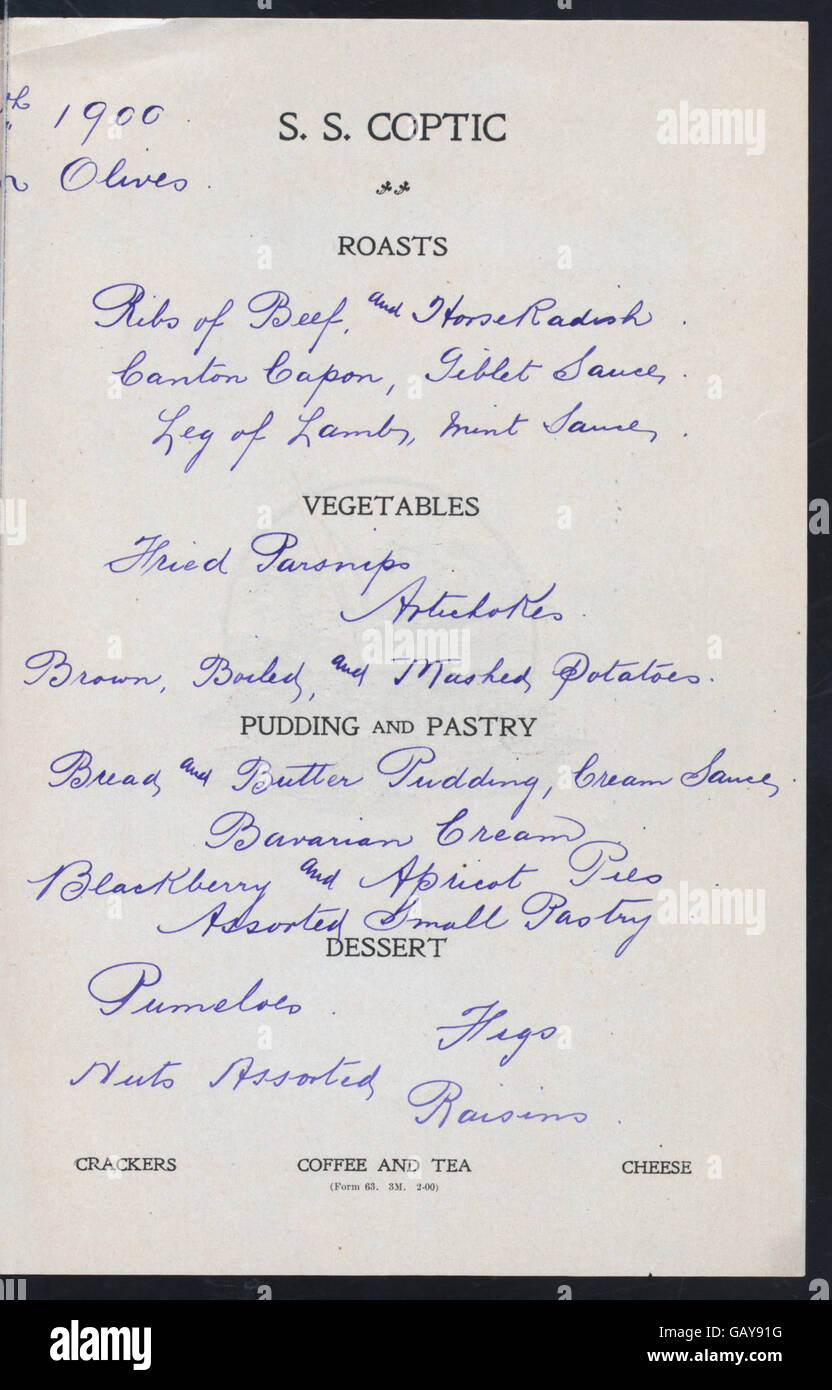 th 1900
S. S. COPTIC
Olives.
ROASTS
Ribs of Beef, and HorseRadish.
Canton Capon, Giblet Sauce.
Leg of Lamb, Mint Sauce.
VEGETABLES
Fried Parsnips
Artichokes.
Brown, Boiled, and Mashed Potatoes.
PUDDING AND PASTRY
Bread and Butter Pudding, Cream Sauce.
Bavarian Cream
Blackberry and Apricot Pies
Assorted Small Pastry
DESSERT
Pumeloes.
Figs
Nuts Assorted
Raisins.
CRACKERS COFFEE AND TEA CHEESE
(Form 63. 3M. 2-00)
alamy
alamy
alamy
alamy
Image ID: GAY91G
www.alamy.com